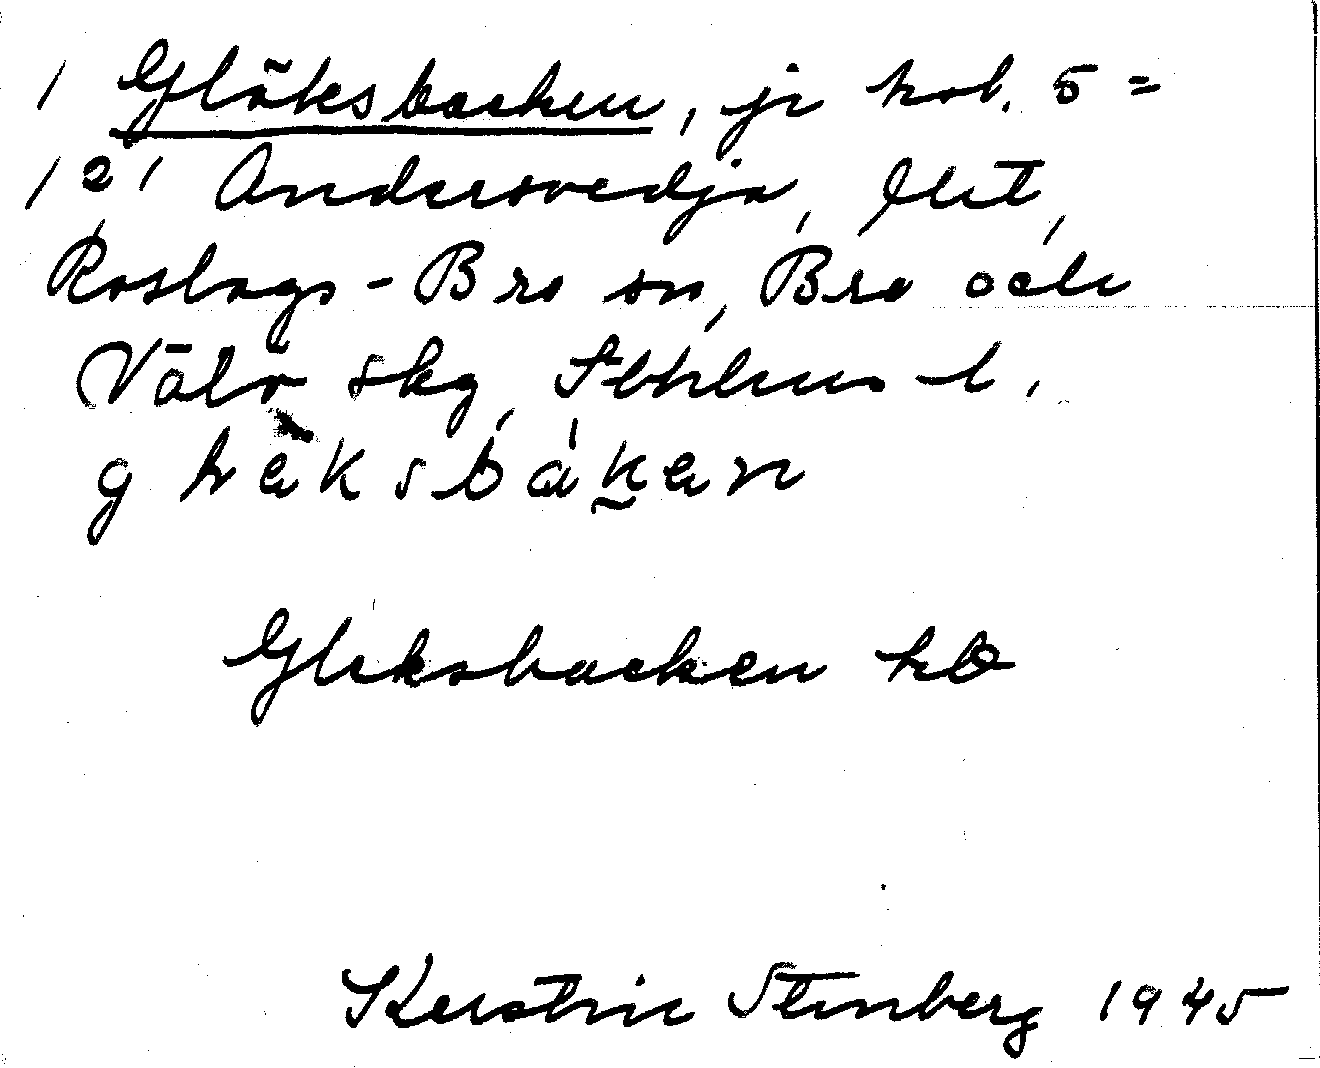 1 Glöksbacken, ji hol. 5 =
12' Andersvedja, Utt,
Roslags-Bro sn, Bro och
Vätö skg, Sthlms l.
Gleksbacken
Kerstin Stenberg 1945